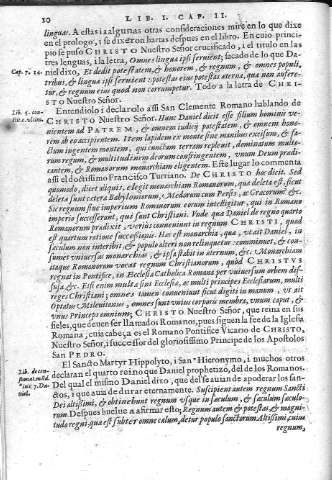 10 LIB. I. CAP. II.
linguas. A estas i a algunas otras consideraciones mire en lo que dixe
en el prologo, i se diran hartas despues en el libro. En cuio princi-
pio puso CHRISTO Nuestro Señor crucificado, i el titulo en las
tres lenguas, i la letra, Omnes linguæ ipsi servient; sacado de lo que Da-
Cap. 7. 14. niel dixo, Et dedit potestatem, & honorem, & regnum, & omnes populi,
tribus, & linguæ ipsi servient: potestas eius potestas æterna, quæ non aufere-
tur, & regnum eius quod non corrumpetur. Todo a la letra de CHRI-
STO Nuestro Señor.
Entendiolo i declarolo assi San Clemente Romano hablando de
CHRISTO Nuestro Señor. Hunc Daniel dicit esse filium hominis ve-
nientem ad PATREM, & omnem iudicij potestatem, & omnem hono-
rem ab eo accipientem. Item lapidem ex monte sine manibus excisum, & fa-
ctum ingentem montem, qui cunctam terram replevit, dominium multo-
rum regum, & multitudinem deorum confringentem, unum Deum prædi-
cantem, & Romanorum monarchiam eligentem. Este lugar lo commenta
assi el doctissimo Francisco Turriano. De CHRISTO hoc dicit. Sed
quomodo, dicet aliquis, elegit monarchiam Romanorum, quæ deleta est, sicut
deleta sunt cætera Babyloniorum, Medorum cum Persis, & Græcorum? &c.
Sic regnum sine imperium Romanorum eorum intelligitur, qui in Romano
imperio successerant, qui sunt Christiani. Unde quæ Daniel de regno quarto
Romanorum prædixit, verius conveniunt in regnum CHRISTI, quod
est quartum ratione successionis. Hæc est monarchia, quæ, ut ait Daniel, in
sæculum non interibit, & populo alteri non relinquetur: comminuet, & con-
sumet vniuersas monarchias, & ipsa stabit in æternum, &c. Monarchiam
itaque Romanorum vocat regnum Christianorum, quod CHRISTUS
regnat in Pontifice, in Ecclesia Catholica Romana per vniuersum orbem def-
fusa, &c. Etsi enim multæ sint Ecclesiæ, & multi principes Ecclesiarum, multi
reges Christiani; omnes tamen conveniunt sicut digiti in manum, ut ait
Optatus Mileuitanus, omnes sunt unius corporis membra, unum caput, &
unus Princeps omnium; CHRISTO Nuestro Señor, que reina en sus
fieles, que deuen ser llamados Romanos, pues siguen la fee de la Iglesia
Romana; cuia cabeça es el Romano Pontifice Vicario de CHRISTO,
Nuestro Señor, i successor del gloriosissimo Principe de los Apostoles
San PEDRO.
El Sancto Martyr Hippolyto, i San Hieronymo, i muchos otros
declaran el quarto reino que Daniel prophetizò, del de los Romanos.
Del qual el mismo Daniel dixo, que del se auian de apoderar los san-
ctos, i que auia de durar eternamente. Suscipient autem regnum Sancti
Dei altissimi, & obtinebunt regnum usque in sæculum, & sæculum sæculo-
rum. Despues buelue a afirmar esto; Regnum autem & potestas, & magni-
tudo regni quæ est subter omne cælum, detur populo sanctorum Altissimi, cuius
regnum,